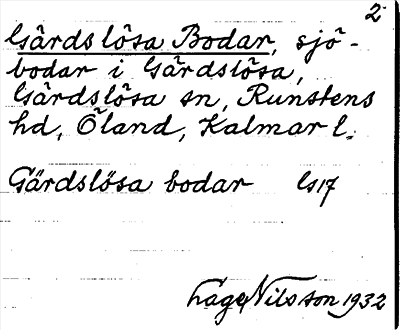 2
Gärdslösa Bodar, sjö-
bodar i Gärdslösa,
Gärdslösa sn, Runstens
hd, Öland, Kalmar l.
Gärdslösa bodar G17
Lage Nilsson 1932